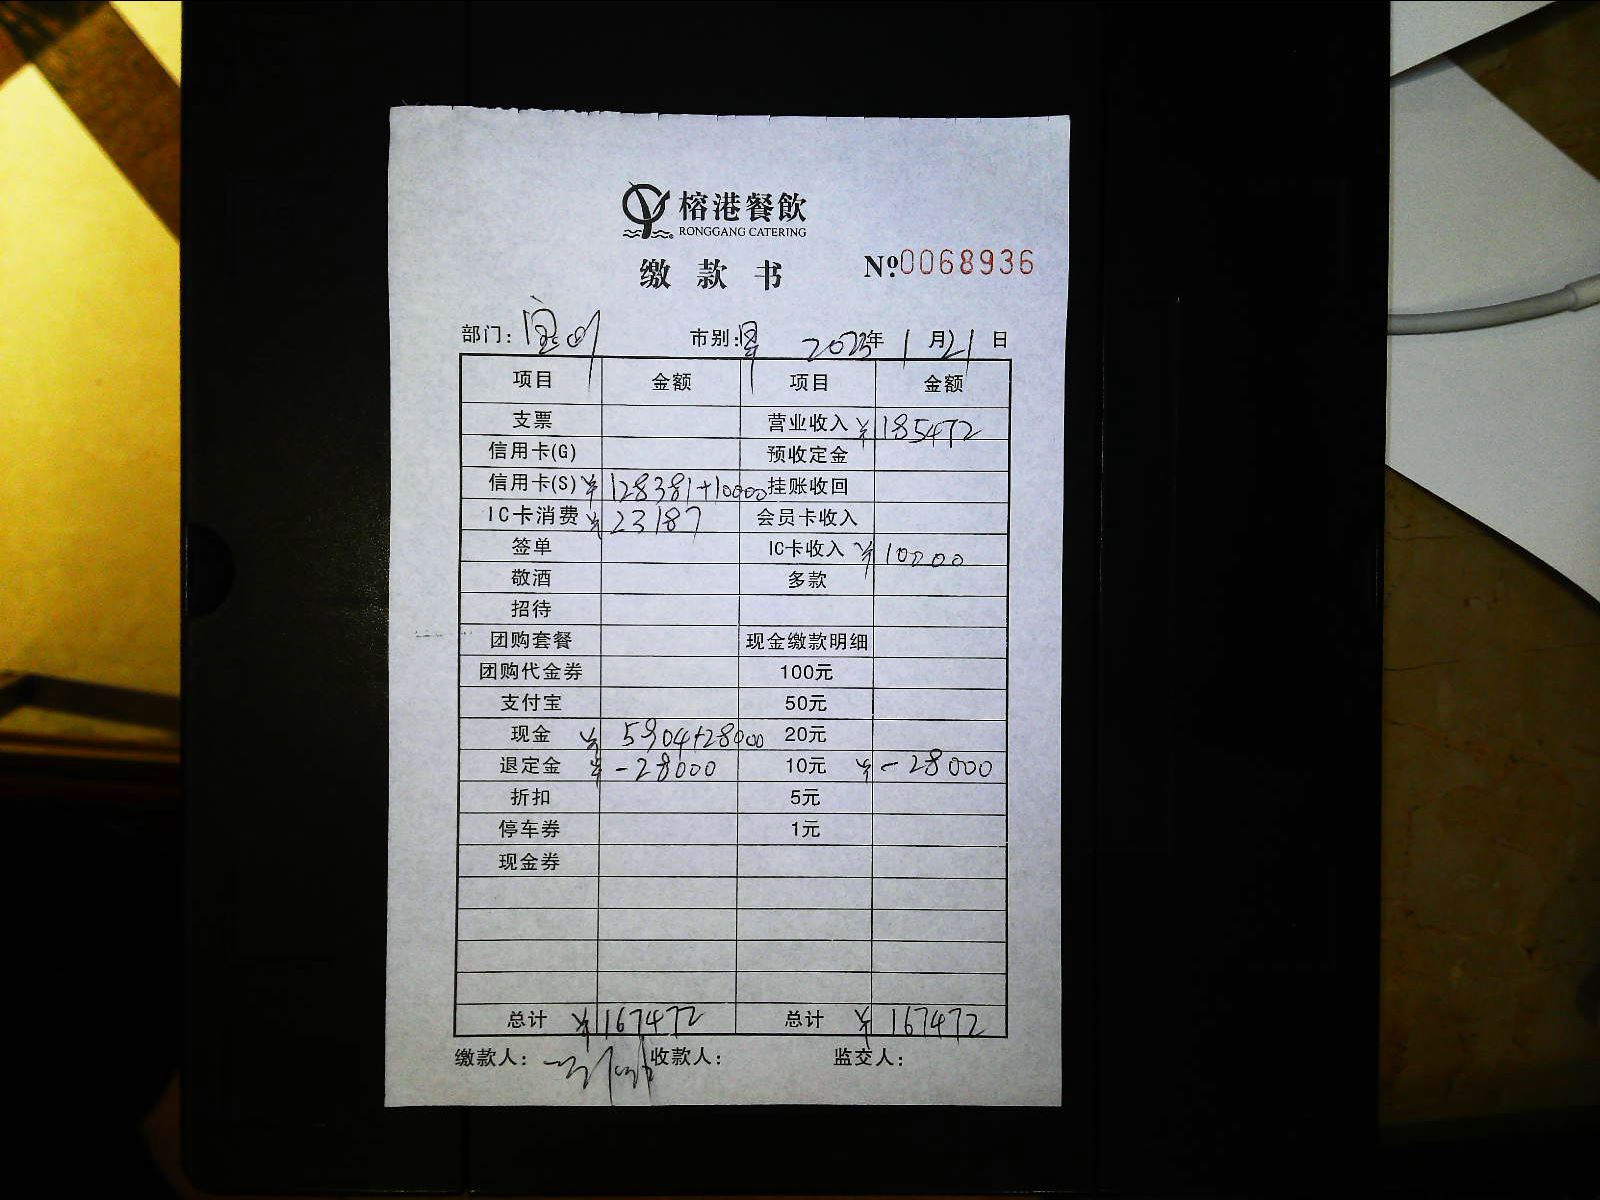 榕港餐飲
RONGGANG CATERING
缴款书 №0068936
部门： 市别： 2023年1月21日
项目 金额 项目 金额
支票 营业收入 ¥185472
信用卡(G) 预收定金
信用卡(S) ¥128381+10000 挂账收回
IC卡消费 ¥23187 会员卡收入
签单 IC卡收入 ¥10000
敬酒 多款
招待
团购套餐 现金缴款明细
团购代金券 100元
支付宝 50元
现金 ¥5904+28000 20元
退定金 ¥-28000 10元 ¥-28000
折扣 5元
停车券 1元
现金券
总计 ¥167472 总计 ¥167472
缴款人： 收款人： 监交人：